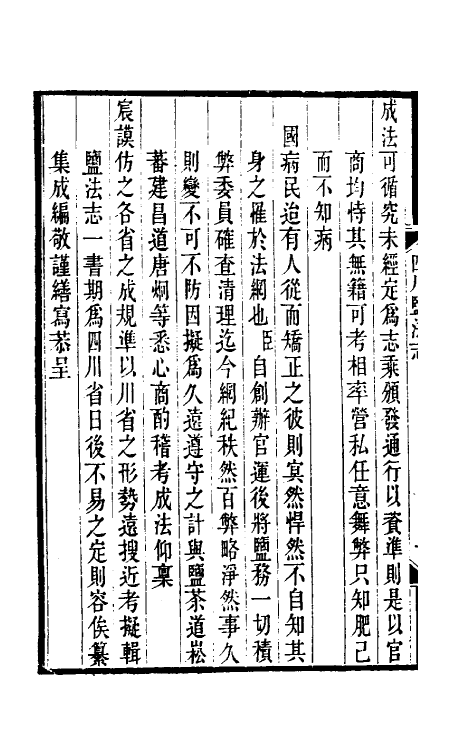 成法可循究未經定爲志乘頒發通行以資準則是以官
商均恃其無籍可考相率營私任意舞弊只知肥己
而不知病
國病民迨有人從而矯正之彼則寞然悍然不自知其
身之罹於法網也臣自創辦官運後將鹽務一切積
弊委員確查清理迄今綱紀秩然百弊略淨然事久
則變不可不防因擬爲久遠遵守之計與鹽茶道崧
蕃建昌道唐炯等悉心商酌稽考成法仰稟
宸謨仿之各省之成規準以川省之形勢遠搜近考擬輯
鹽法志一書期爲四川省日後不易之定則容俟纂
集成編敬謹繕寫恭呈
四川鹽法志